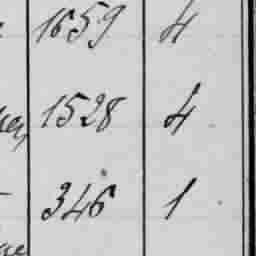 1659 4
1528 4
346 1